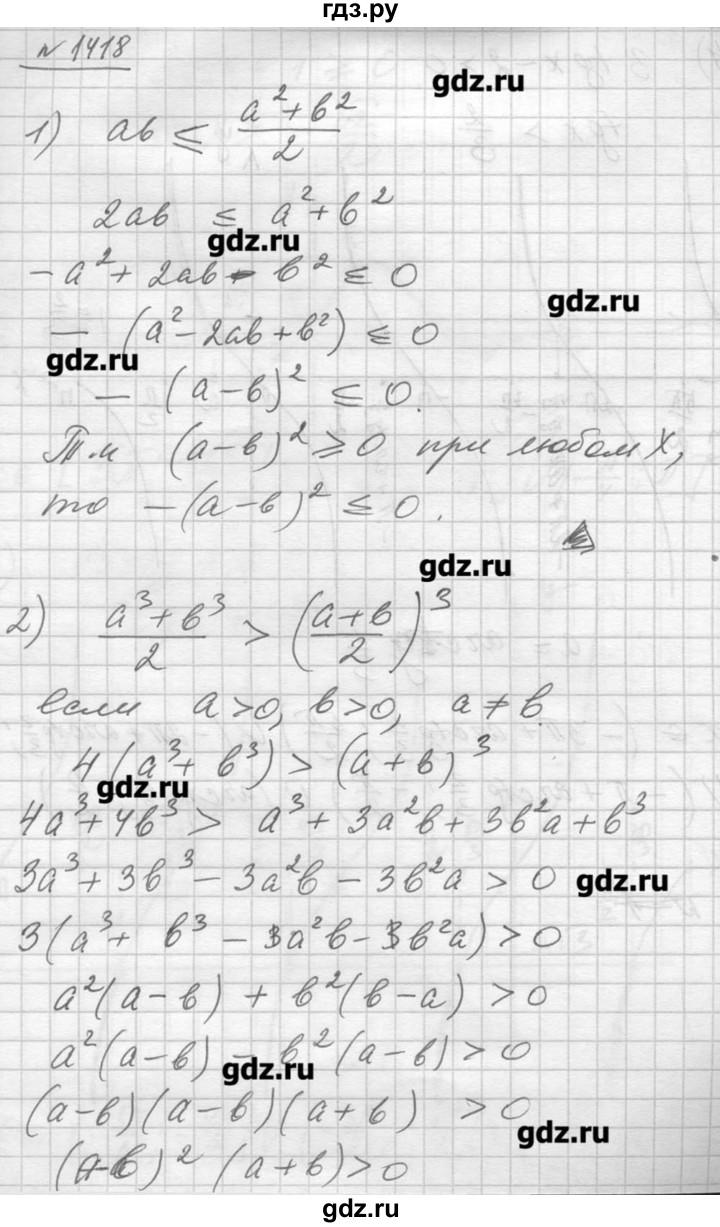 гдз.ру
№ 1418
gdz.ru
1) ab ≤ (a² + b²)/2
2ab ≤ a² + b²
gdz.ru
- a² + 2ab - b² ≤ 0
gdz.ru
- (a² - 2ab + b²) ≤ 0
gdz.ru
- (a - b)² ≤ 0.
Т.к (a - b)² ≥ 0 при любом X,
то - (a - b)² ≤ 0.
gdz.ru
2) (a³ + b³)/2 > ((a + b)/2)³
если a > 0, b > 0, a ≠ b.
4(a³ + b³) > (a + b)³
gdz.ru
4a³ + 4b³ > a³ + 3a²b + 3b²a + b³
3a³ + 3b³ - 3a²b - 3b²a > 0
gdz.ru
3(a³ + b³ - 3a²b - 3b²a) > 0
a²(a - b) + b²(b - a) > 0
a²(a - b) - b²(a - b) > 0
gdz.ru
(a - b)(a - b)(a + b) > 0
gdz.ru
(a - b)² (a + b) > 0
gdz.ru